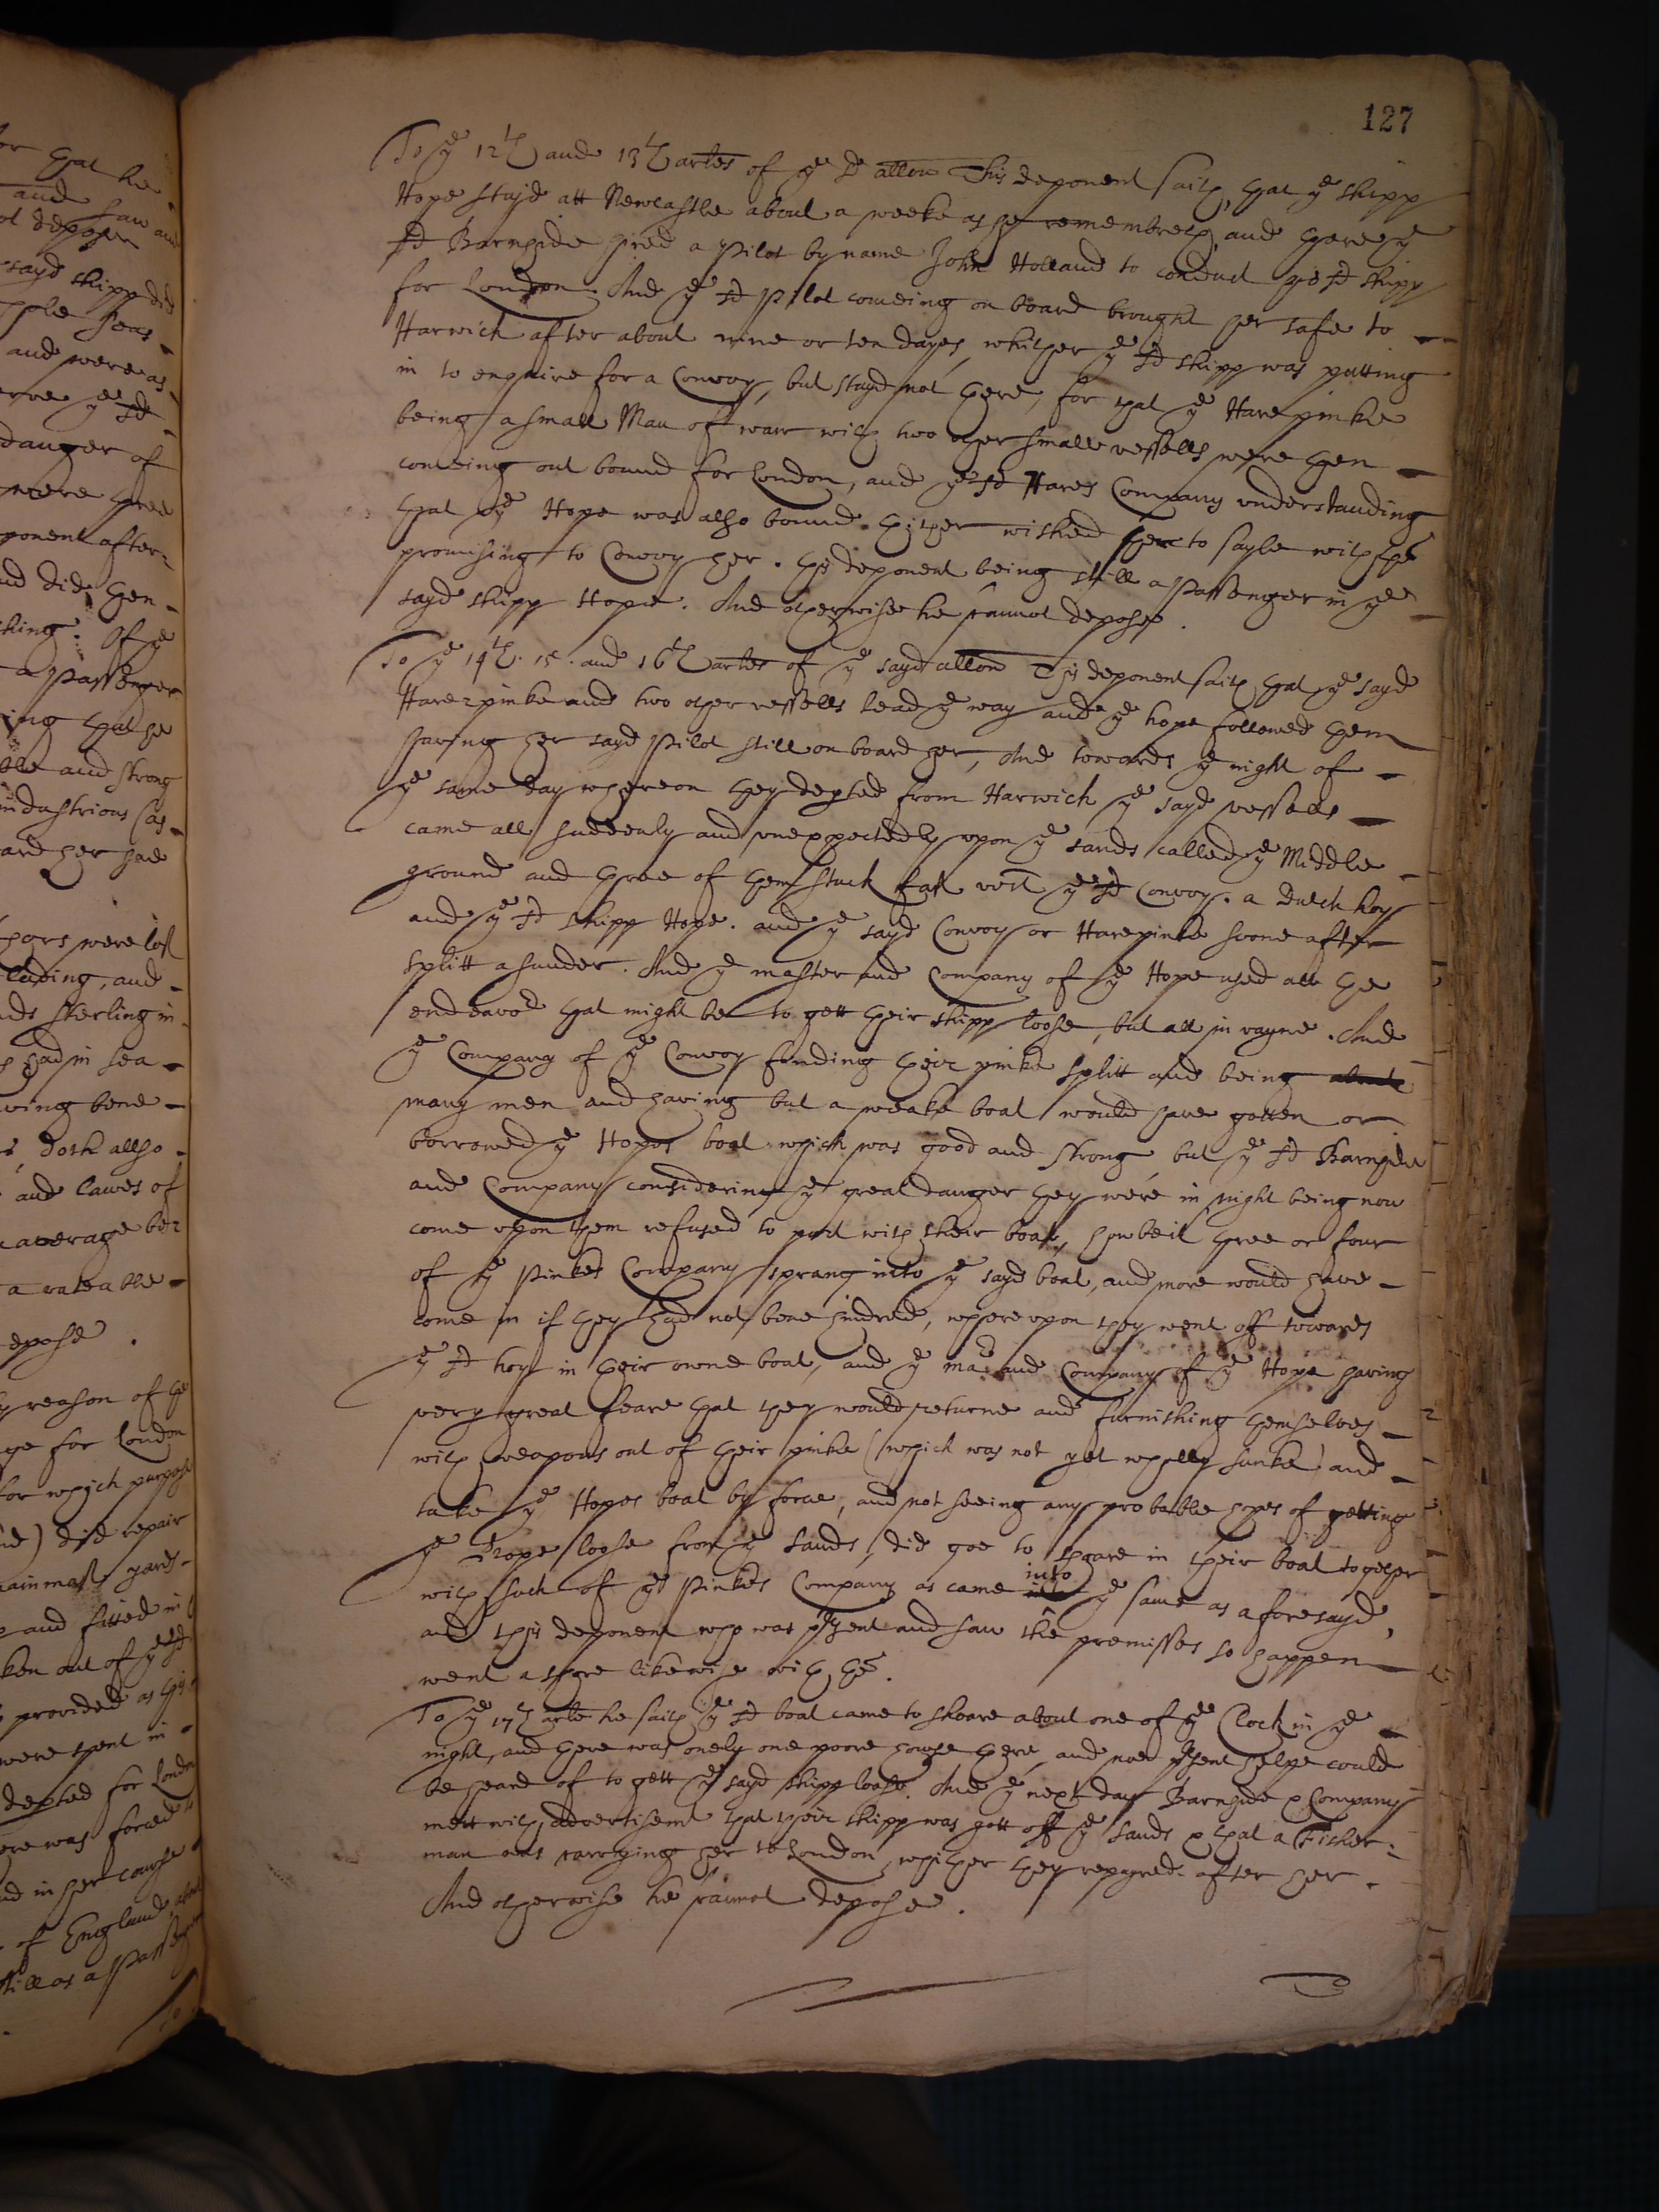 127
To ye 12th and 13th artes of ye sd allon This deponent saith, that ye shipp
Hope stayd att Newcastle about a weeke as he remembreth, and there ye
sd Barnside hired a Pilot by name John Holland to conduct ye sd shipp
for London. And ye sd Pilot comeing on board brought her safe to
Harwich after about nine or ten dayes, whither ye sd shipp was putting
in to enquire for a Convoy, but stayd not there, for that ye Hare pinke
being a small Man of warr with two other small vessells were then
comeing out bound for London, and ye sd Hares Company understanding
that ye Hope was also bound thither wished her to sayle with them
promising to Convoy her. this deponent being still a Passenger in ye
sayd shipp Hope. And otherwise he cannot depose.
To ye 14th. 15. and 16th artes of ye sayd allon This deponent saith that ye sayd
Hare pinke and two other vessells lead ye way and ye hope followed them
having her sayd Pilot still on board her, And towards ye night of
ye same day whereon they depted from Harwich ye sayd vessells
came all suddenly and unexpectedly upon ye sands called ye Middle
ground and three of them stuck fast vest ye sd Convoy. a Dutch hoy
and ye sd shipp Hope. and ye sayd Convoy or Hare pinke soone after
splitt asunder. And ye master and Company of ye Hope used all the
endeavor that might be to gett their shipp loose, but all in vayne. And
ye Company of ye Convoy finding their pinke splitt and being
many men and having but a weake boat would have gotten or
borrowed ye Hopes boat which was good and strong, but ye sd Barnside
and Company considering ye great danger they were in night being now
come upon them refused to part with their boate, howbeit three or four
of ye Pinkes Company sprang into ye sayd boat, and more would have
come in if they had not bene hindred, whereupon they went off towards
ye sd hoy in their owne boat, and ye mar and Company of ye Hope having
very great feare that they would returne and furnishing themselves
with weapons out of their pinke (which was not yet wholly sunke) and
take ye Hopes boat by force, and not seeing any probable hopes of getting
ye Hope loose from ye sands, did goe to shoare in their boat together
with such of ye Pinkes Company as came into ye same as aforesayd,
and this deponent who was present and saw the premisses so happen
went ashore likewise with them.
To ye 17th arle he saith ye sd boat came to shoare about one of ye Clock in ye
night, and there was onely one poore howse there, and noe present helpe could
be heard of to gett ye sayd shipp loose. And ye next day Barnside & Company
mett with advertisemt that their shipp was gott off ye sands & that a Fisher-
man was carrying her to London, whither they repayred after her.
And otherwise he cannot depose.